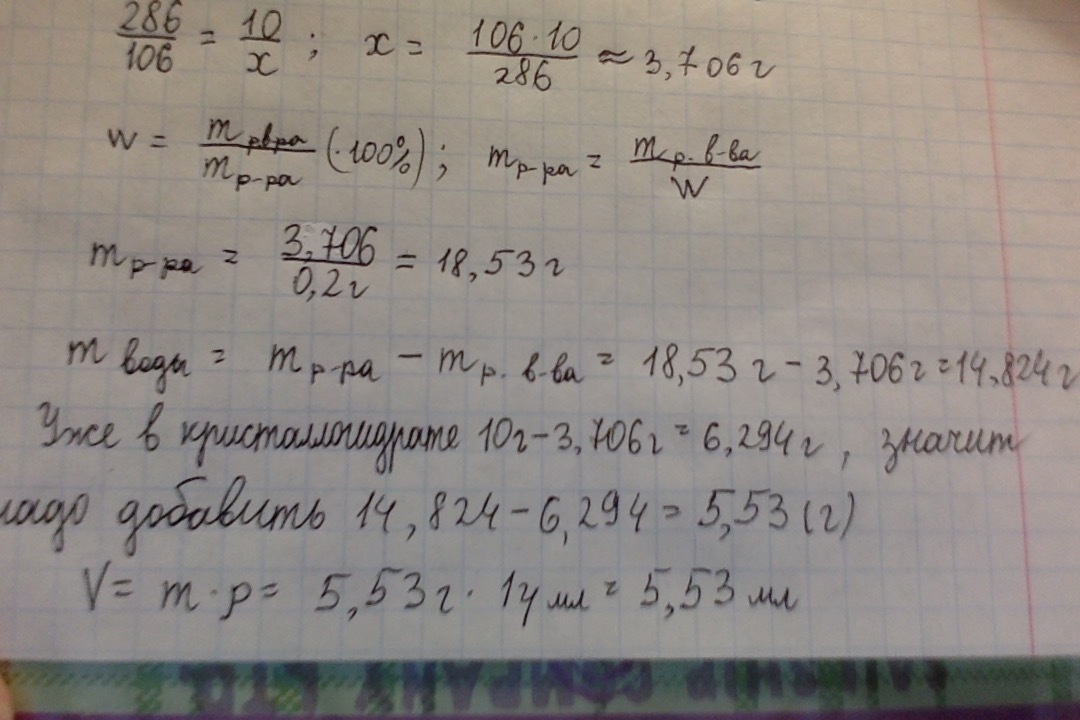 286/106 = 10/x ; x = 106·10/286 ≈ 3,706 г
W = m р.в-ва/m р-ра (·100%) ; m р-ра = m р. в-ва/W
m р-ра = 3,706/0,2г = 18,53 г
m воды = m р-ра − m р. в-ва = 18,53 г − 3,706 г = 14,824 г
Уже в кристаллогидрате 10г − 3,706г = 6,294 г , значит
надо добавить 14,824 − 6,294 = 5,53 (г)
V = m · ρ = 5,53 г · 1 г/мл = 5,53 мл
COMPANY LTD